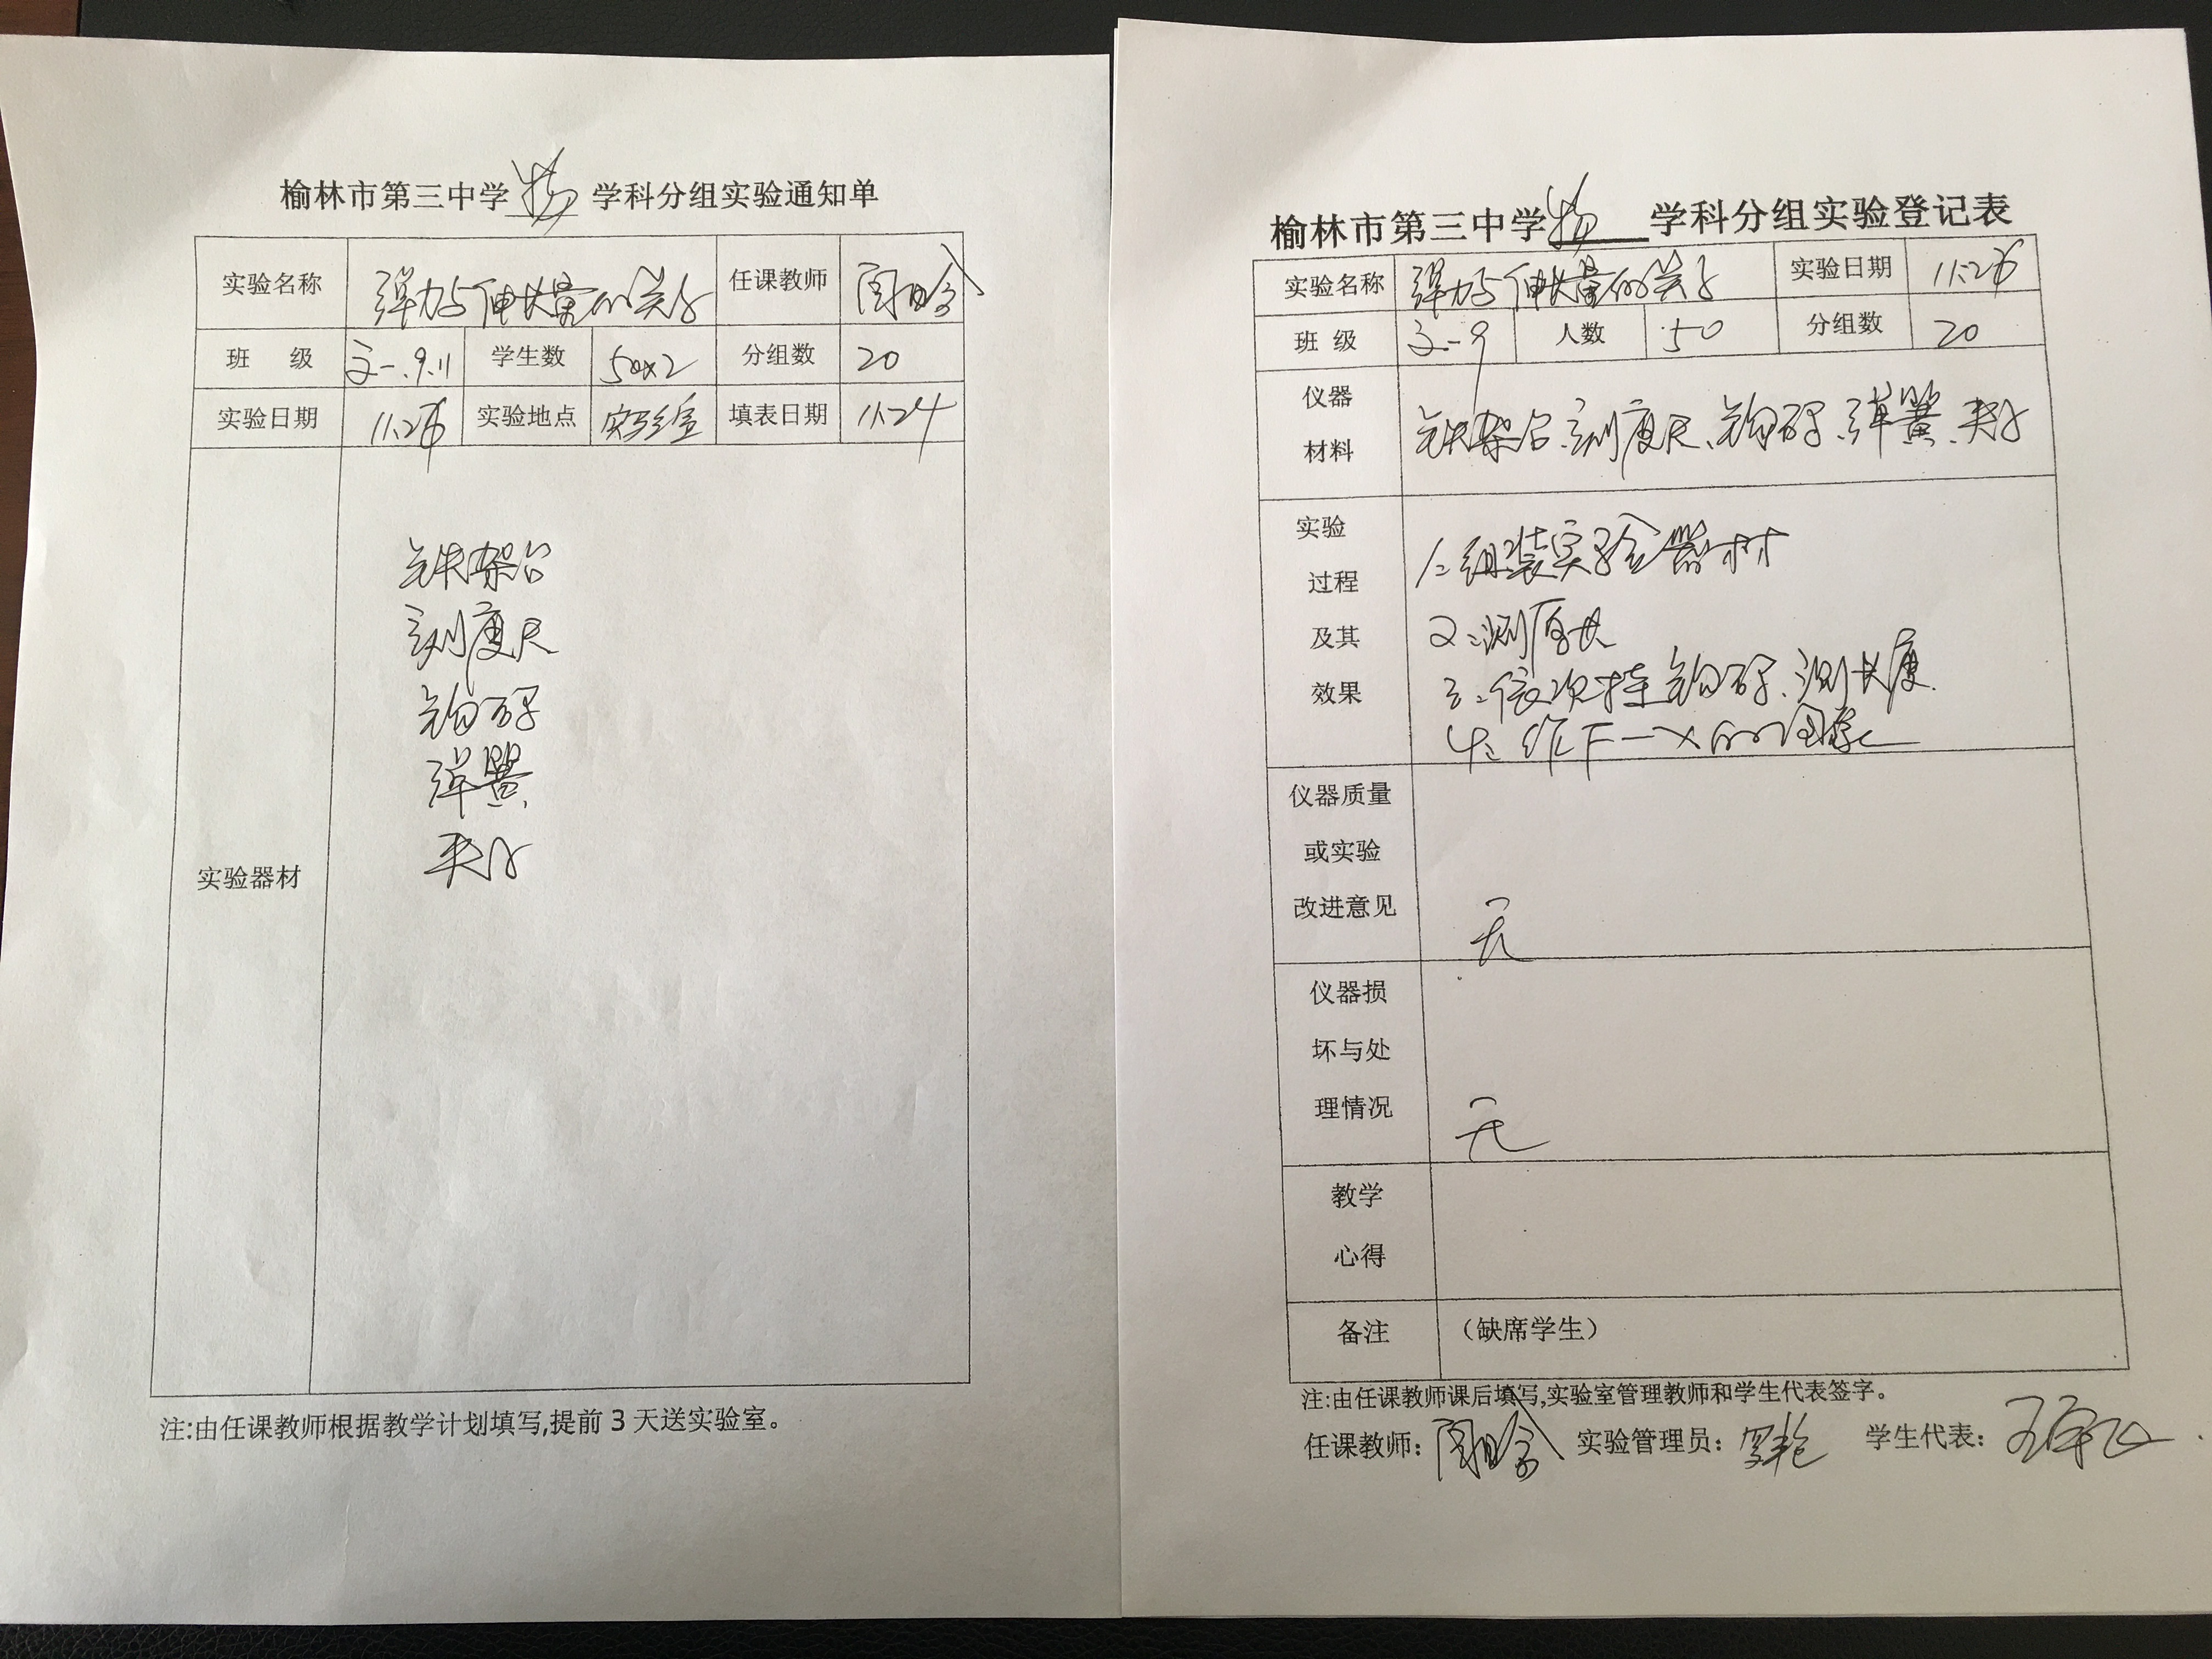 榆林市第三中学 物 学科分组实验通知单
实验名称 弹力与伸长量的关系 任课教师
班 级 高一.9.11 学生数 50×2 分组数 20
实验日期 11.26 实验地点 实验室 填表日期 11.24
实验器材
铁架台
刻度尺
钩码
弹簧
夹子
注:由任课教师根据教学计划填写,提前 3 天送实验室。
榆林市第三中学 物 学科分组实验登记表
实验名称 弹力与伸长量的关系 实验日期 11.26
班 级 高一9 人数 50 分组数 20
仪器材料 铁架台、刻度尺、钩码、弹簧、夹子
实验过程及其效果
1: 组装实验器材
2: 测原长
3: 依次挂钩码、测长度.
4: 作F—x的图象
仪器质量或实验改进意见 无
仪器损坏与处理情况 无
教学心得
备注 （缺席学生）
注:由任课教师课后填写,实验室管理教师和学生代表签字。
任课教师: 实验管理员: 学生代表: